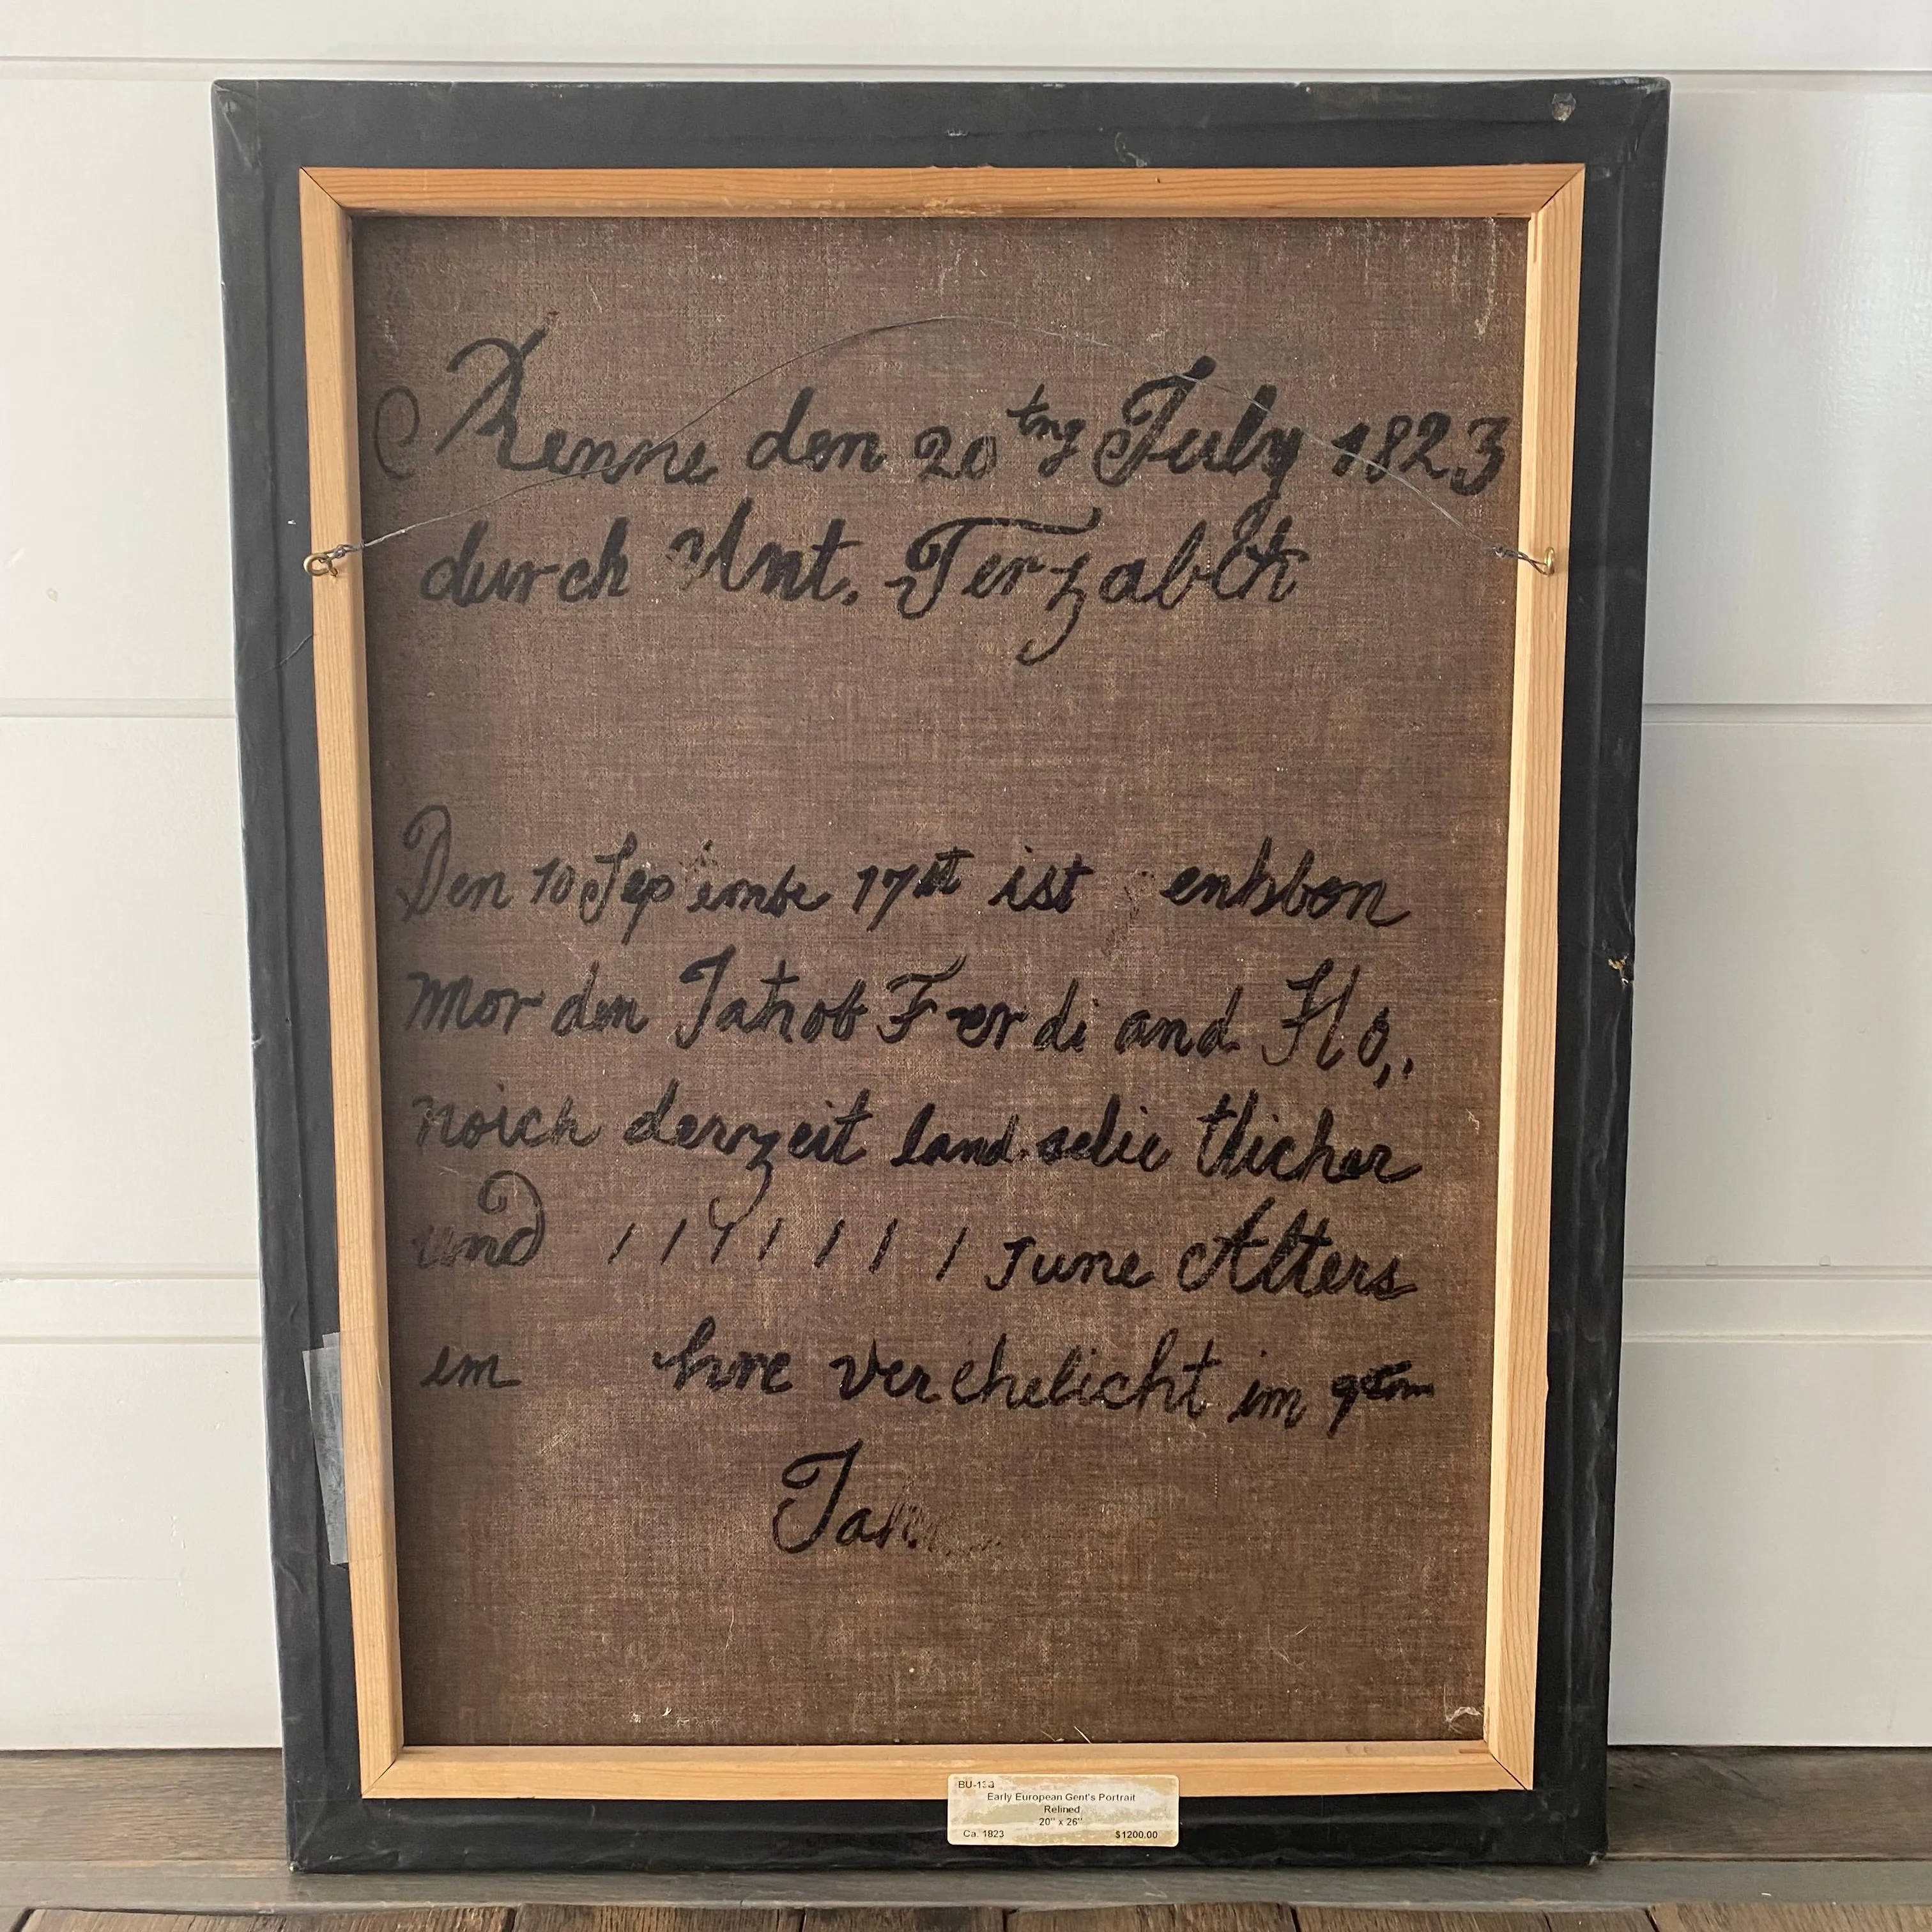 Renne den 20 tng July 1823
durch Ant. Terzabek
Den 10 September 17 ist enhbon
mor den Jakob Ferdi and Ho,.
noich derzeit land.selie tlicher
und 1 1 4 1 1 1 1 June Alters
em hre verehelicht im
Jah
BU-133
Early European Gent's Portrait
Relined
20" x 26"
Ca. 1823 $1200.00